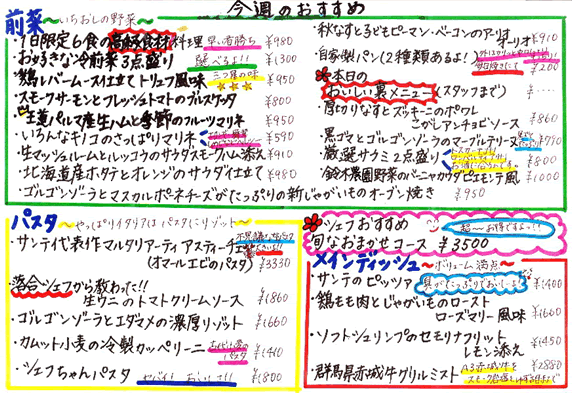 今週のおすすめ
前菜 〜いちおしの野菜〜
・1日限定6食の高級食材料理 早い者勝ち ¥980
・お好きな冷前菜3点盛り 選べるよ!! ¥1300
・鶏レバームース仕立てトリュフ風味 三ツ星の味 ¥950
・スモークサーモンとフレッシュトマトのブルスケッタ ¥800
・王道パルマ産生ハムと季節のフルーツマリネ ¥950
・いろんなキノコのさっぱりマリネ ¥590
・生マッシュルームとルッコラのサラダスモークハム添え ¥910
・北海道産ホタテとオレンジのサラダ仕立て ¥980
・ゴルゴンゾーラとマスカルポーネチーズがたっぷりの新じゃがいものオーブン焼き ¥950
・秋なすと子どもピーマン・ベーコンのアリオオーリオ ¥910
・自家製パン(2種類あるよ!) ¥200
・本日の
おいしい裏メニュー(スタッフまで) ¥----
・厚切りなすとズッキーニのポワレ
こがしアンチョビソース ¥860
・黒ゴマとゴルゴンゾーラのマーブルテリーヌ ¥790
・厳選サラミ2点盛り ¥800
・鈴木農園野菜のバーニャカウダピエモンテ風 ¥1000
パスタ 〜やっぱりイタリアはパスタにリゾット〜
・サンテ代表作マルタリアーティアスティーチェ
(オマールエビのパスタ) ¥3330
落合シェフから教わった!!
生ウニのトマトクリームソース ¥1860
・ゴルゴンゾーラとエダマメの濃厚リゾット ¥1660
・カムット小麦の冷製カッペリーニ ¥1410
・シェフちゃんパスタ ¥1800
シェフおすすめ 超〜お得ですよっ!!
旬なおまかせコース ¥3500
メインディッシュ 〜ボリューム満点〜
・サンテのピッツァ 具がたっぷりおいしいよ ¥1400
・鶏もも肉とじゃがいものロースト
ローズマリー風味 ¥1660
・ソフトシュリンプのセモリナフリット
レモン添え ¥1450
・群馬県赤城牛グリルミスト ¥2880